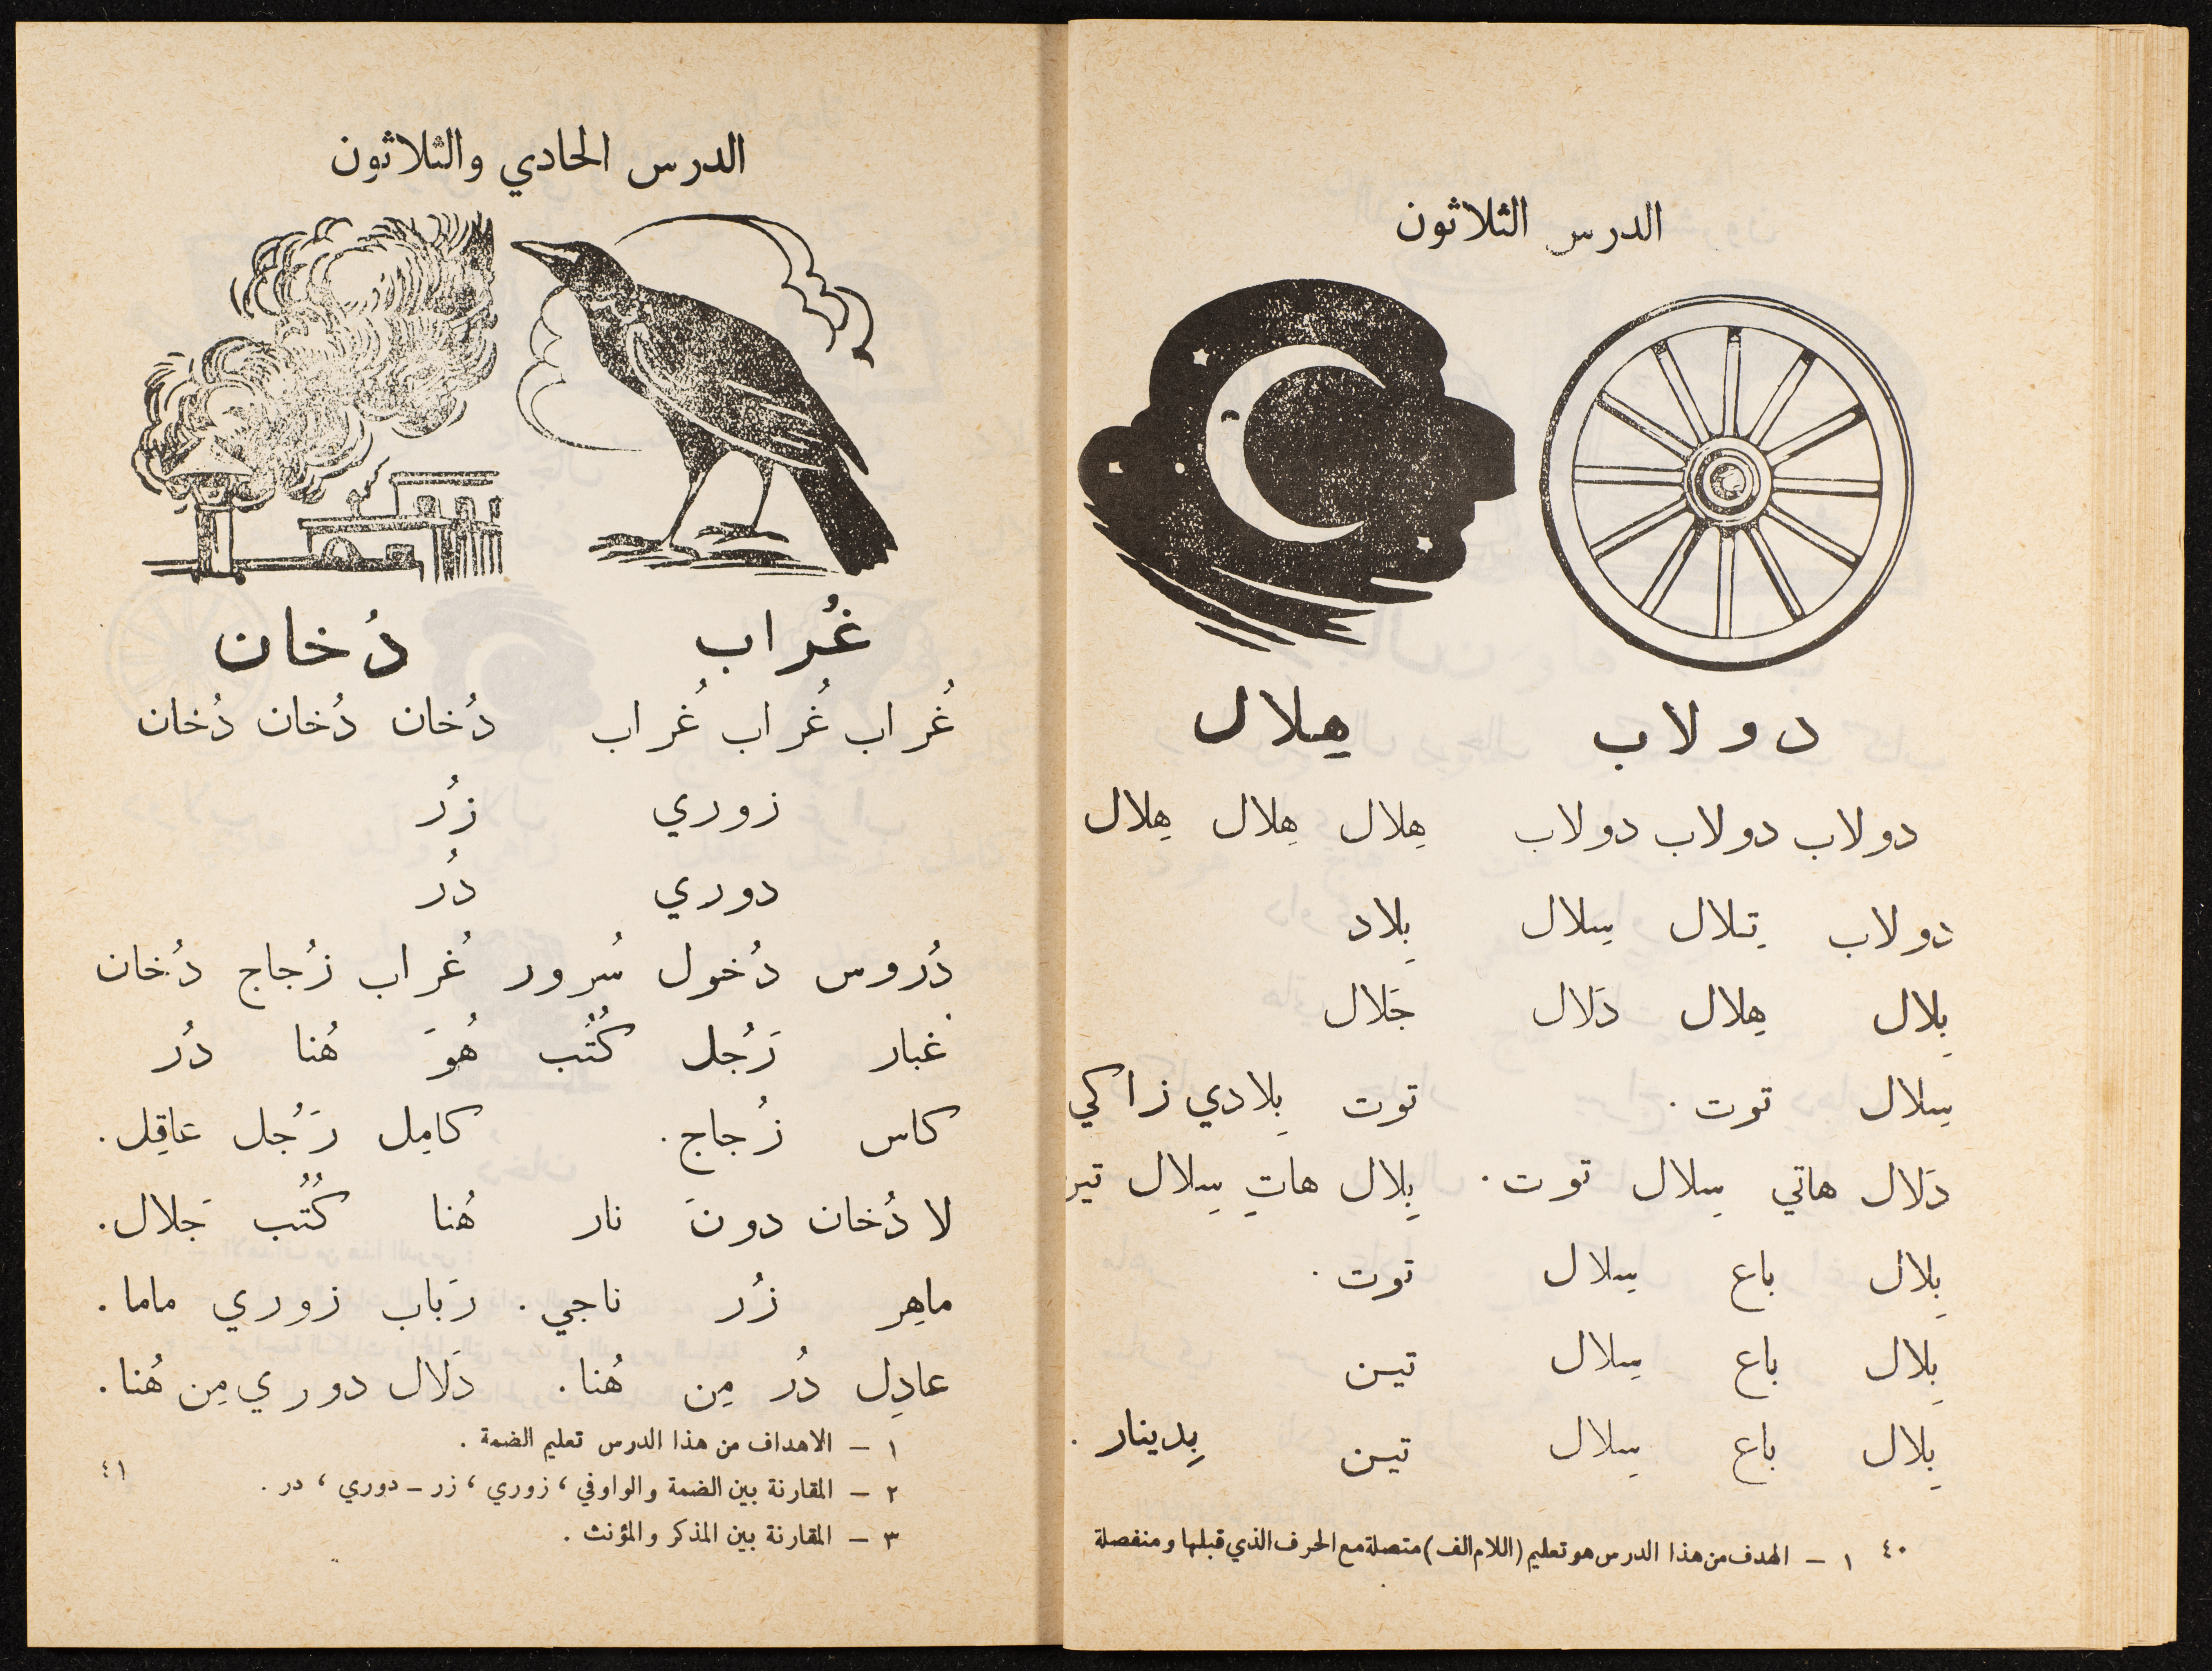 الدرس الثلاثون
دولاب هِلال
دولاب دولاب دولاب هِلال هِلال هِلال
دولاب تِلال سِلال بِلاد
بِلال هِلال دَلال جَلال
سِلال توت . توت بِلادي زاكي
دَلال هاتي سِلال توت . بِلال هاتِ سِلال
بِلال باع سِلال توت .
بِلال باع سِلال تين
بِلال باع سِلال تين بِدينار .
٤٠ ١ – الهدف من هذا الدرس هو تعليم (اللام الف) متصلة مع الحرف الذي قبلها ومنفصلة
الدرس الحادي والثلاثون
غُراب دُخان
غُراب غُراب غُراب دُخان دُخان دُخان
زوري زُر
دوري دُر
دُروس دُخول سُرور غُراب زُجاج دُخان
غُبار رَجُل كُتُب هُوَ هُنا دُر
كاس زُجاج . كامِل رَجُل عاقِل .
لا دُخان دونَ نار هُنا كُتُب جَلال .
ماهِر زُر ناجي . رَباب زوري ماما .
عادِل دُر مِن هُنا . دَلال دوري مِن هُنا .
١ – الاهداف من هذا الدرس تعليم الضمة .
٢ – المقارنة بين الضمة والواو في ، زوري ، زر – دوري ، در .
٣ – المقارنة بين المذكر والمؤنث .
٤١